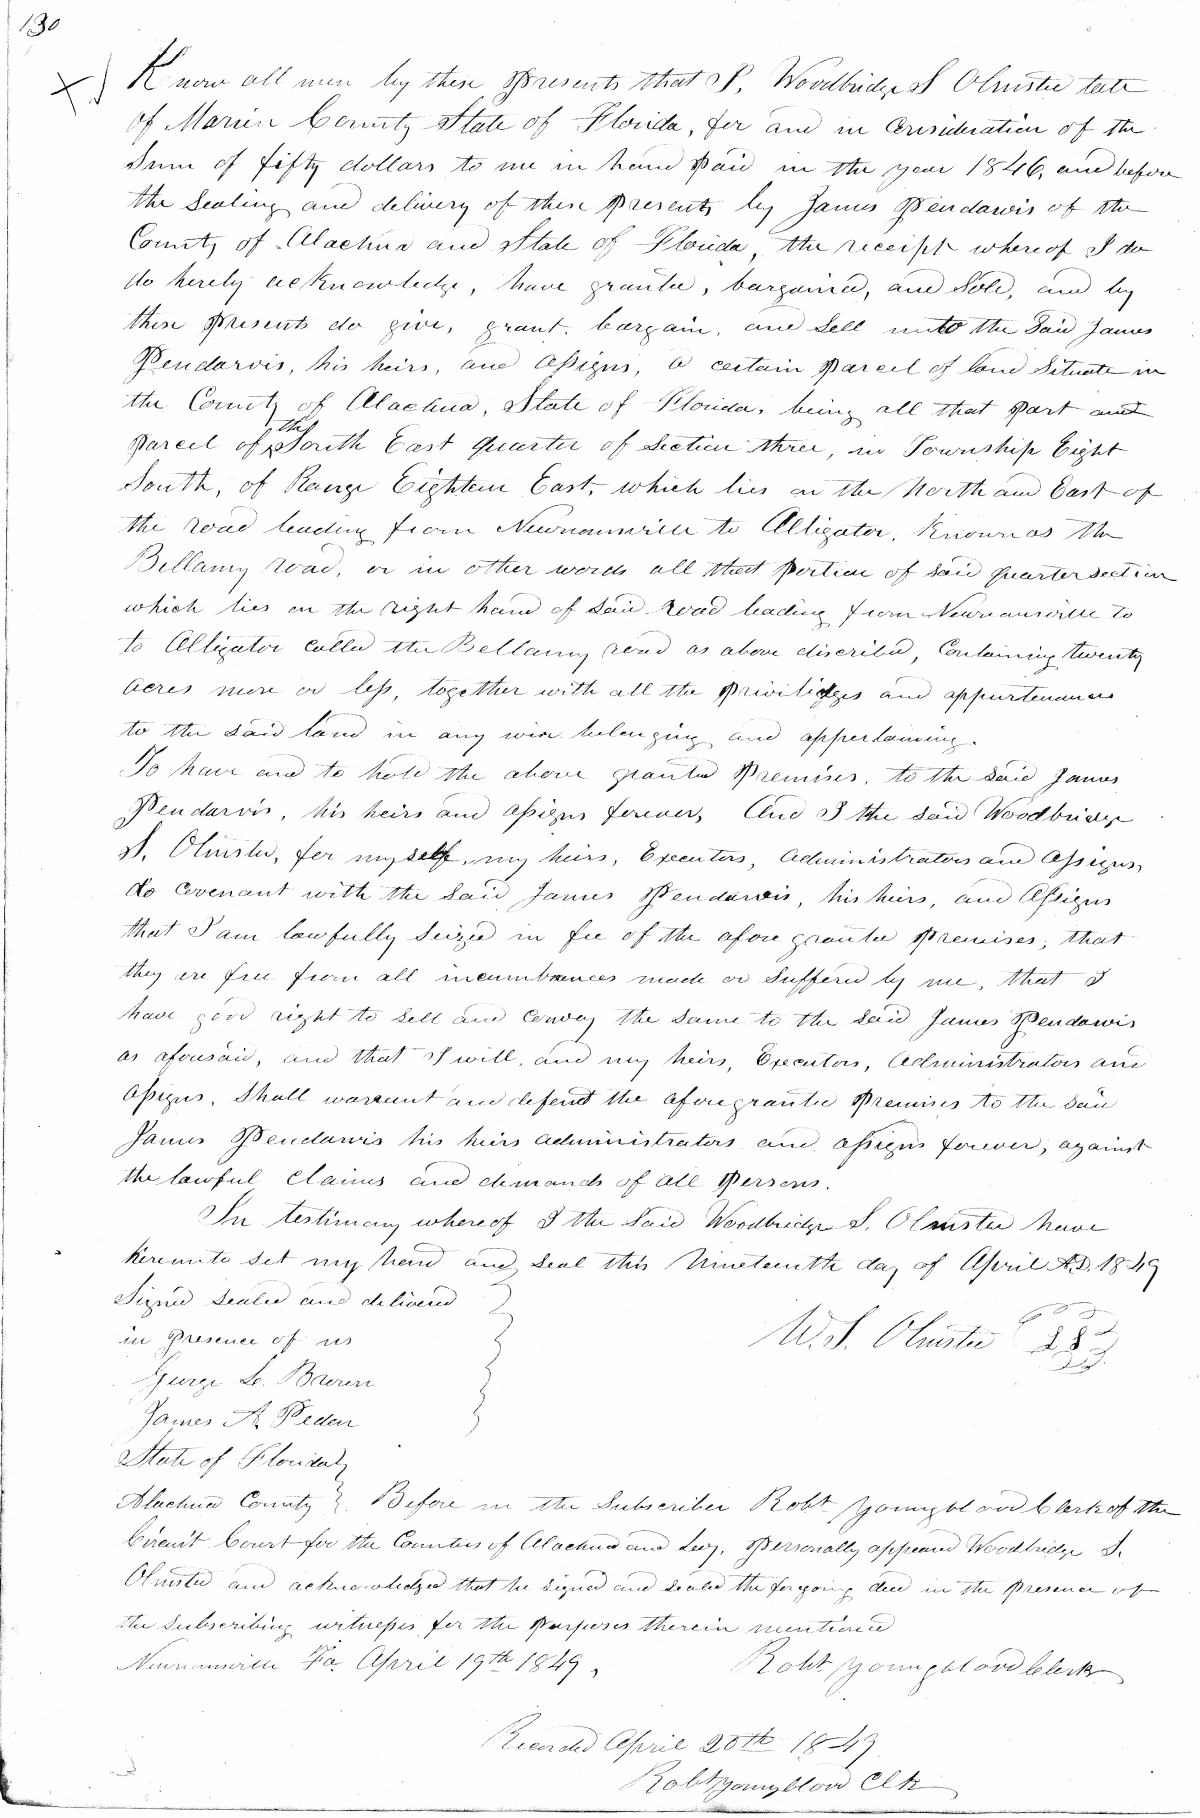 130
X
Know all men by these Presents that I, Woodbridge S Olmsted late
of Marion County State of Florida, for and in Consideration of the
Sum of fifty dollars to me in hand Paid in the year 1846, and before
the Sealing and delivery of these Presents by James Pendarvis of the
County of Alachua and State of Florida, the receipt whereof I do
do hereby acknowledge, have granted, bargained, and Sold, and by
these Presents do give, grant, bargain, and Sell unto the Said James
Pendarvis, his heirs, and assigns, a certain Parcel of land Situate in
the County of Alachua, State of Florida, being all that Part and
Parcel of the South East quarter of Section three, in Township Eight
South, of Range Eighteen East, which lies on the North and East of
the road leading from Newnansville to Alligator, Known as the
Bellamy road, or in other words all that Portion of Said quarter Section
which lies on the right hand of Said road leading from Newnansville to
to Alligator called the Bellamy road as above discribed, Containing twenty
acres more or less, together with all the Priviledges and appurtenances
to the Said land in any wise belonging and appertaining.
To have and to hold the above granted Premises, to the Said James
Pendarvis, his heirs and assigns forever, And I the Said Woodbridge
S. Olmsted, for myself, my heirs, Executors, Administrators and Assigns,
do Covenant with the Said James Pendarvis, his heirs, and Assigns
that I am lawfully Seized in fee of the afore granted Premises, that
they are free from all incumbrances made or Suffered by me, that I
have good right to Sell and Convey the Same to the Said James Pendarvis
as aforesaid, and that I will, and my heirs, Executors, Administrators and
Assigns, Shall warrant and defend the aforegranted Premises to the Said
James Pendarvis his heirs administrators and assigns forever, against
the lawful claims and demands of all Persons.
In testimony whereof I the Said Woodbridge S. Olmsted have
hereunto Set my hand and Seal this Nineteenth day of April A.D. 1849
Signed Sealed and delivered
in Presence of us
W.S. Olmsted
George L. Brown
James A Peden
State of Florida
Alachua County Before me the Subscriber Robt Youngblood Clerk of the
Circuit Court for the Counties of Alachua and Levy, Personally appeared Woodbridge S.
Olmsted and acknowledged that he Signed and Sealed the forgoing deed in the Presence of
the Subscribing witnesses for the Purposes therein mentioned
Newnansville Fa. April 19th 1849,
Robt Youngblood Clerk
Recorded April 20th 1849
Robt Youngblood Clk